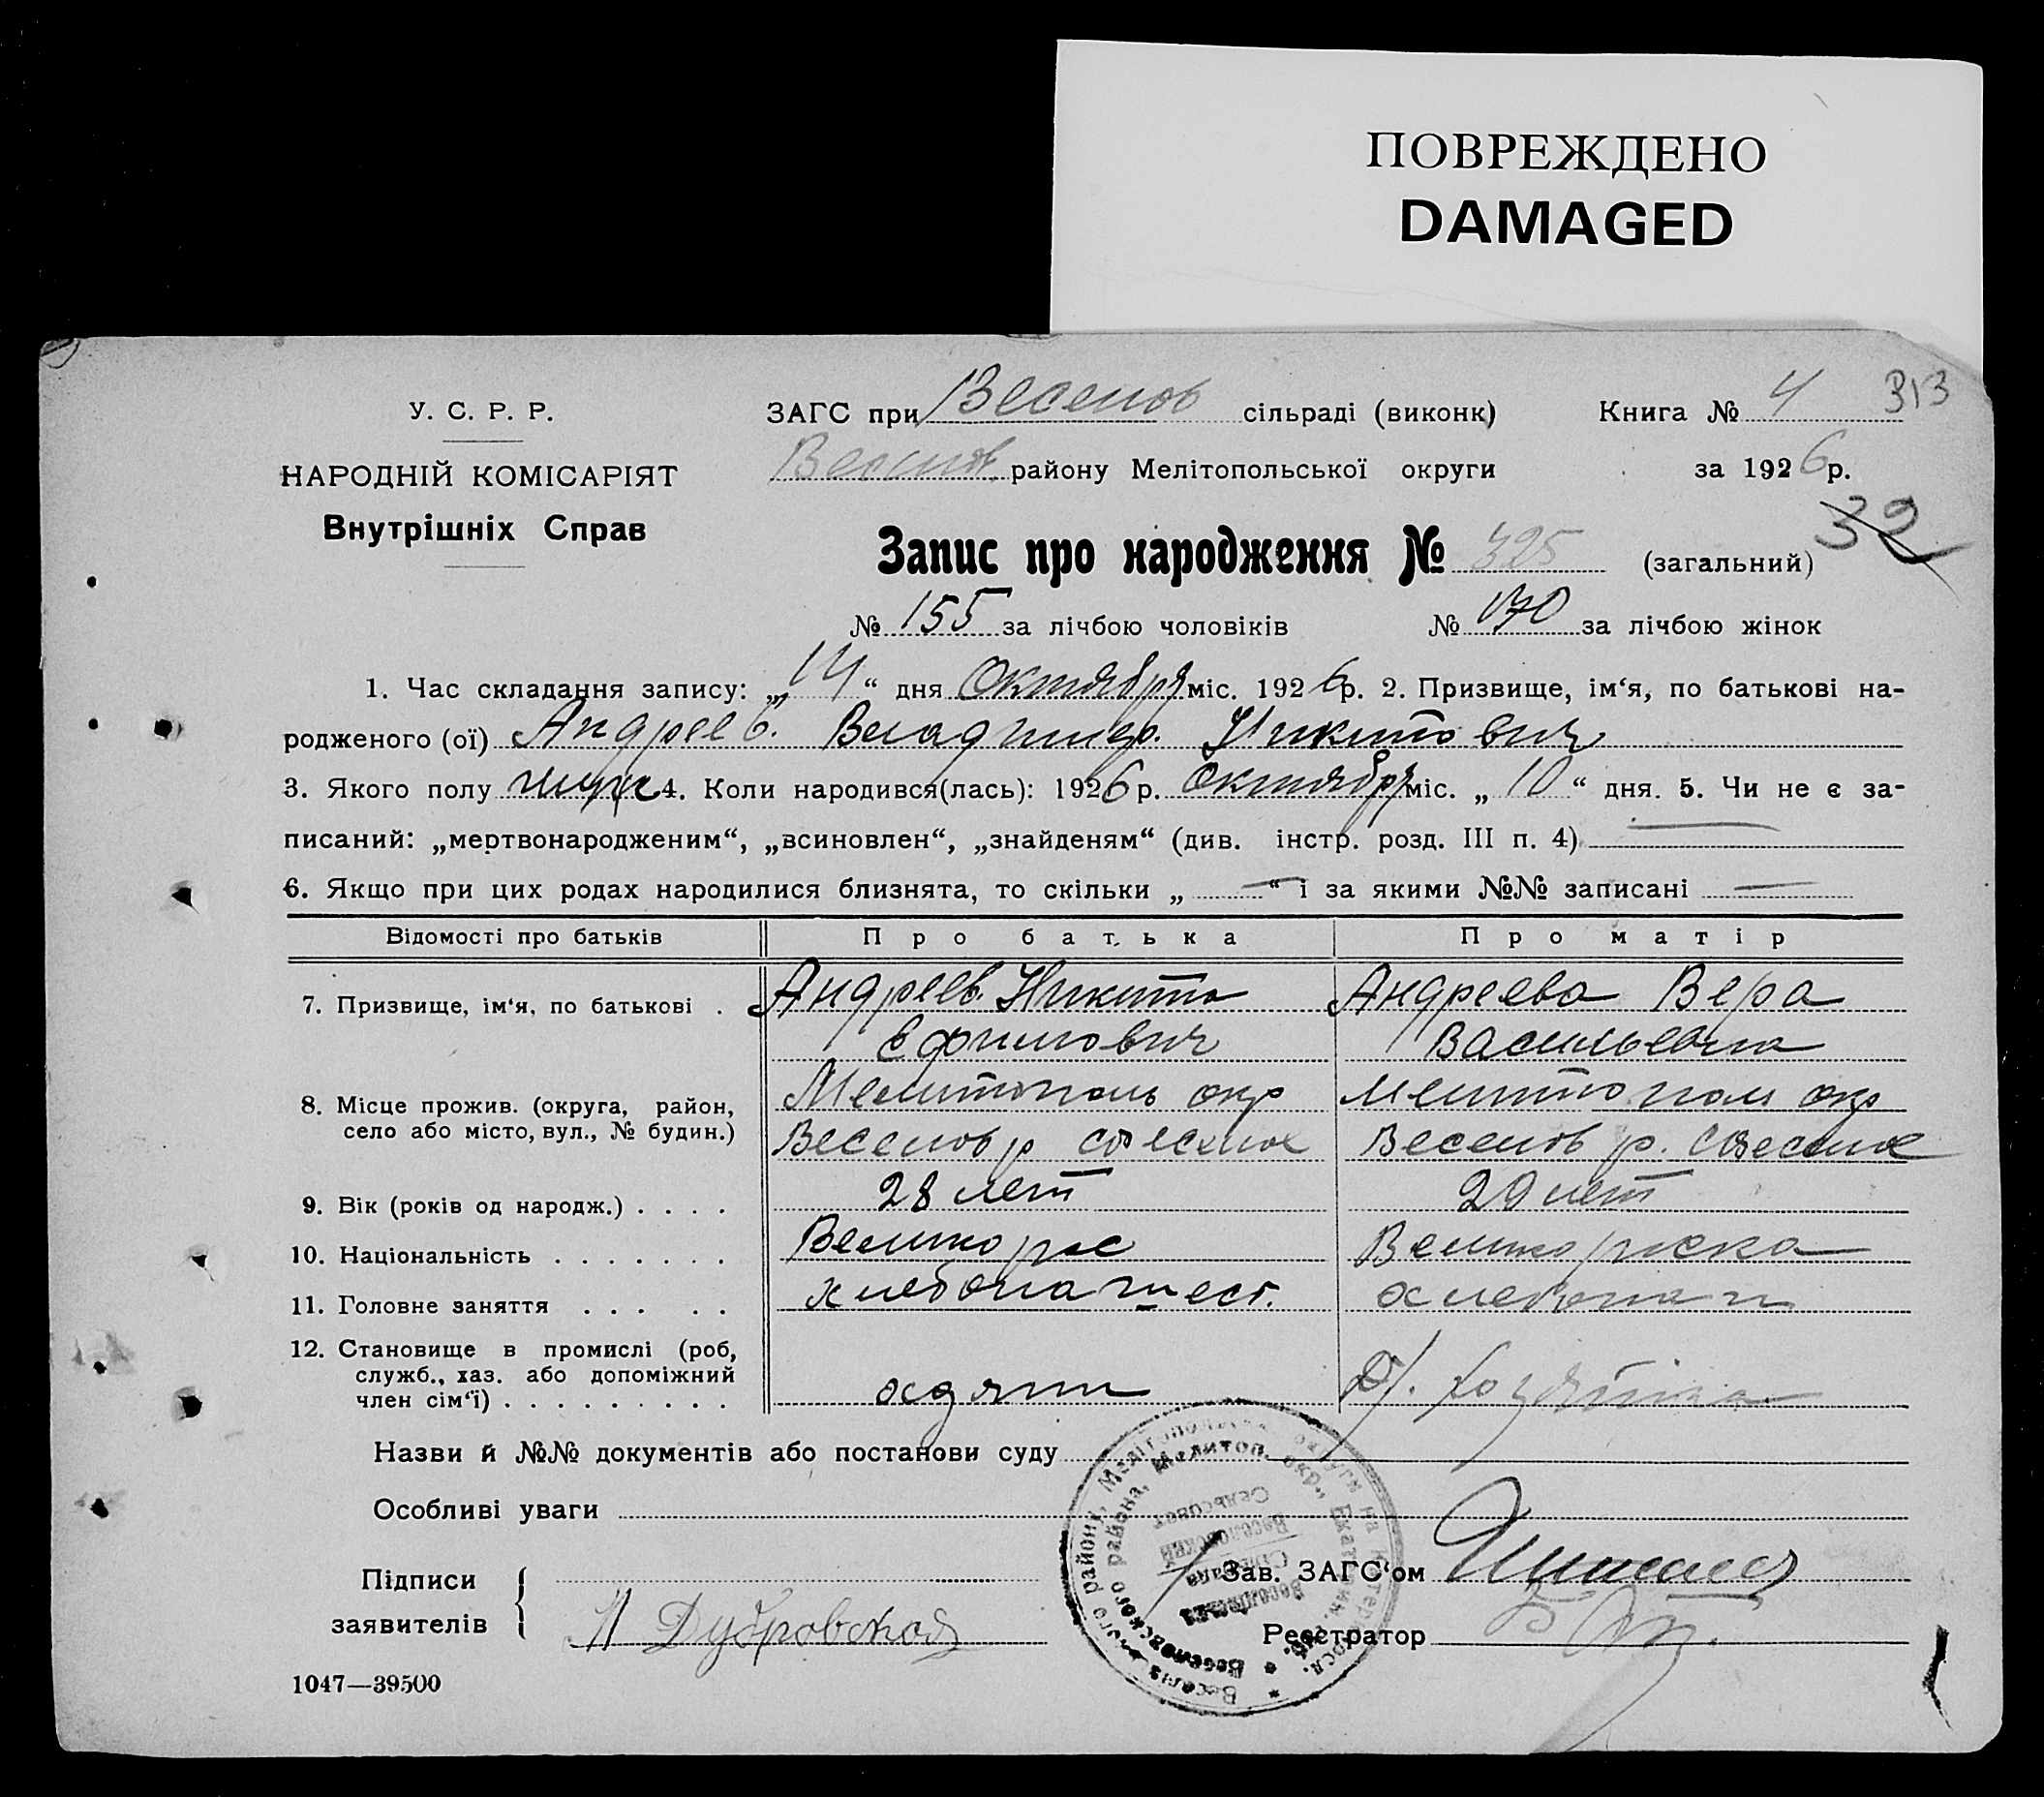 ПОВРЕЖДЕНО
DAMAGED
У. С. Р. Р.
НАРОДНІЙ КОМІСАРІЯТ
Внутрішніх Справ
ЗАГС при Веселов сільраді (виконк)
Книга № 4 313
Веселов району Мелітопольської округи
за 1926 р.
32
Запис про народження № 325 (загальний)
№ 155 за лічбою чоловіків № 170 за лічбою жінок
1. Час складання запису: „14“ дня Октября міс. 1926 р. 2. Призвище, ім‘я, по батькові на-
родженого (ої) Андреев. Владимир. Никитович
3. Якого полу муж 4. Коли народився(лась): 1926 р. Октября міс. „10“ дня. 5. Чи не є за-
писаний: „мертвонародженим“, „всиновлен“, „знайденям“ (див. інстр. розд. III п. 4) —
6. Якщо при цих родах народилися близнята, то скільки „—“ і за якими №№ записані —
Відомості про батьків Про батька Про матір
7. Призвище, ім‘я, по батькові . Андреев. Никита Андреева Вера
Ефимович Васильевна
8. Місце прожив. (округа, район, Мелитополь окр Мелитополь окр
село або місто, вул., № будин.) Веселов р Веселов р.
9. Вік (років од народж.) . . . . 28 лет 29 лет
10. Національність . . . . . . . Великорос Великороска
11. Головне заняття . . . . . хлебопашест. хлебопаш
12. Становище в промислі (роб,
служб., хаз. або допоміжний
член сім‘ї) . . . . . . . . . хозяин Д/. хозяйка
Назви й №№ документів або постанови суду
Особливі уваги
Підписи
заявителів
Дубровской
Зав. ЗАГС‘ом
Реєстратор
1047—39500
Мелитоп. окр., Екатерин.
Веселовского района,
Веселовский
Сельсовет